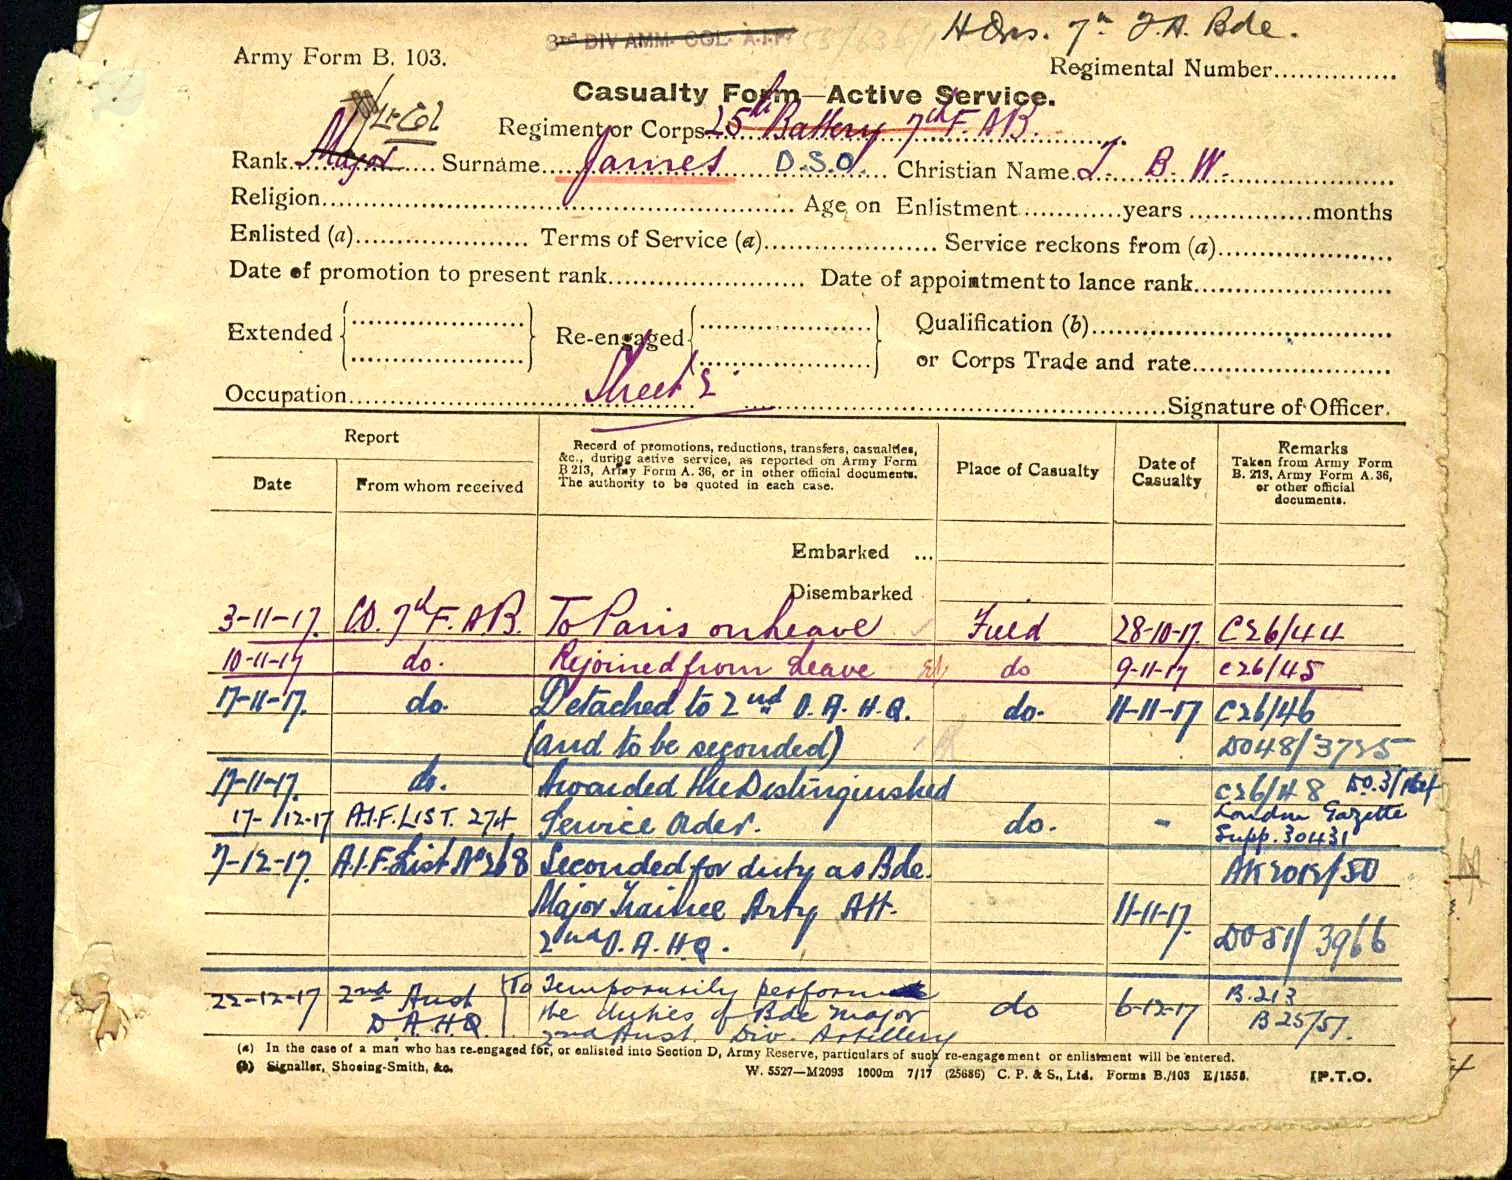 3rd DIV AMM. COL. A.I.F. Hdqrs. 7th F.A. Bde.
Army Form B. 103.
Regimental Number...............
Casualty Form—Active Service.
Lt-Col
Regiment or Corps 25th Battery 7th F.A.B.
Rank Major Surname James D.S.O. Christian Name T. B. W.
Religion............ Age on Enlistment............years...............months
Enlisted (a)............ Terms of Service (a)............ Service reckons from (a)............
Date of promotion to present rank............ Date of appointment to lance rank............
Extended Re-engaged Qualification (b)............
or Corps Trade and rate............
Sheet 2
Occupation............Signature of Officer.
Report
Date
From whom received
Record of promotions, reductions, transfers, casualties,
&c., during active service, as reported on Army Form
B 213, Army Form A. 36, or in other official documents.
The authority to be quoted in each case.
Place of Casualty
Date of
Casualty
Remarks
Taken from Army Form
B. 213, Army Form A. 36,
or other official
documents.
Embarked ...
Disembarked
3-11-17. CO. 7th F.A.B. To Paris on Leave Field 28-10-17. C26/44
10-11-17 do. Rejoined from Leave do 9-11-17 C26/45
17-11-17. do. Detached to 2nd D.A.H.Q. do. 11-11-17 C26/46
(and to be seconded) DO48/3735
17-11-17. do. Awarded the Distinguished C26/48
17-12-17 A.I.F. LIST. 274 Service Order. do. - London Gazette
Supp. 30431
7-12-17. A.I.F. List No 268 Seconded for duty as Bde.
Major Trainee Arty Att. 11-11-17.
2nd D.A.H.Q. DO51/3966
22-12-17 2nd Aust D.A.H.Q. To Temporarily perform do 6-12-17 B.213
the duties of Bde Major B25/51.
2nd Aust. Div. Artillery
(a) In the case of a man who has re-engaged for, or enlisted into Section D, Army Reserve, particulars of such re-engagement or enlistment will be entered.
(b) Signaller, Shoeing-Smith, &c. W. 5527—M2093 1000m 7/17 (25686) C. P. & S., Ltd. Forms B./103 E/1558. [P.T.O.